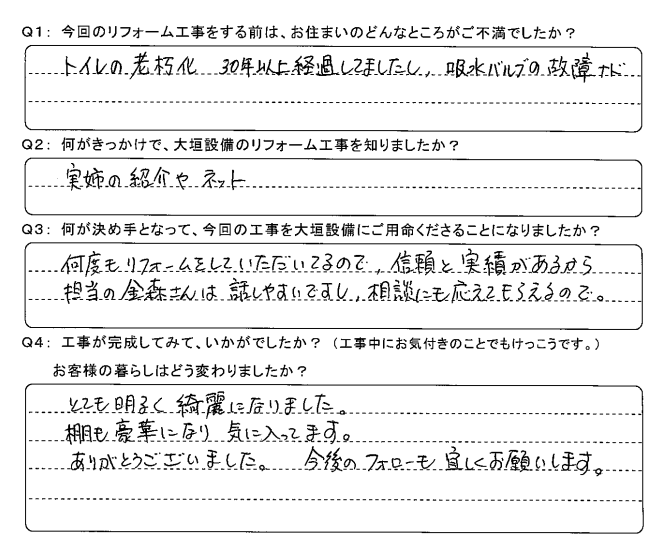 Q1: 今回のリフォーム工事をする前は、お住まいのどんなところがご不満でしたか？
トイレの老朽化 30年以上経過してましたし、吸水バルブの故障など
Q2: 何がきっかけで、大垣設備のリフォーム工事を知りましたか？
実姉の紹介や ネット
Q3: 何が決め手となって、今回の工事を大垣設備にご用命くださることになりましたか？
何度もリフォームをしていただいてるので、信頼と実績があるから
担当の金森さんは話しやすいですし、相談にも応えてもらえるので。
Q4: 工事が完成してみて、いかがでしたか？（工事中にお気付きのことでもけっこうです。）
お客様の暮らしはどう変わりましたか？
とても明るく綺麗になりました。
棚も豪華になり気に入ってます。
ありがとうございました。 今後のフォローも宜しくお願いします。